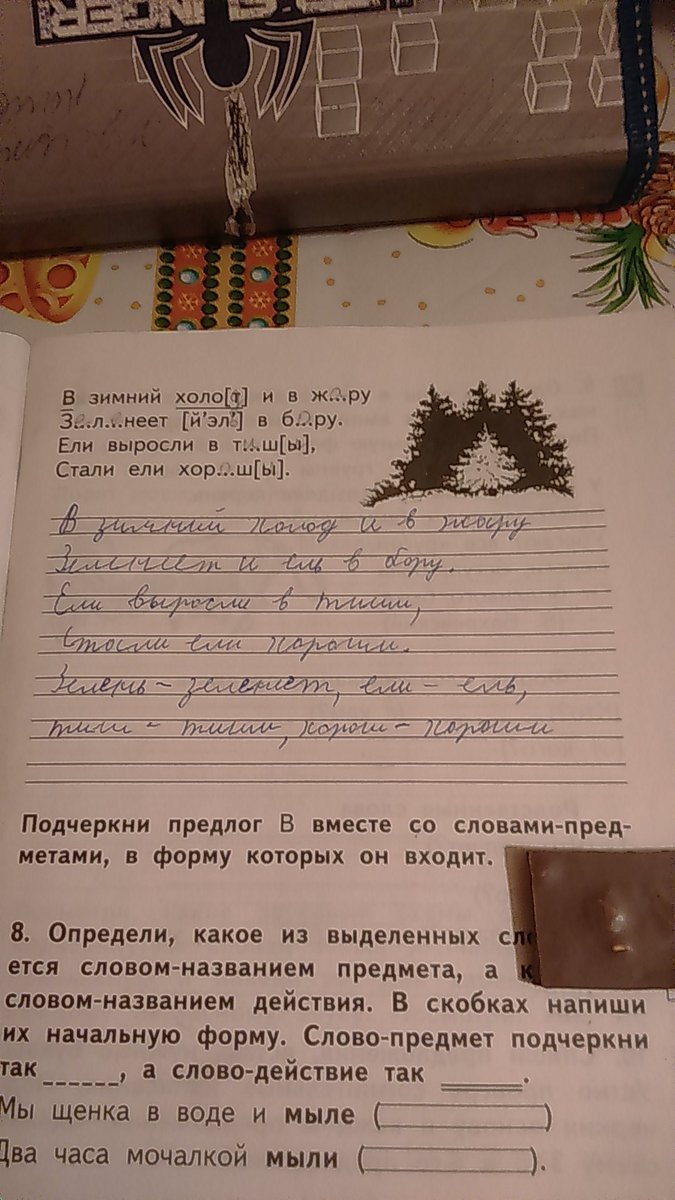 В зимний холо[т] и в ж..а..ру
З..е..л..е..неет [й'эл'] в б..о..ру.
Ели выросли в т..и..ш[ы],
Стали ели хор..о..ш[ы].
В зимний холод и в жару
Зеленеет и ель в бору.
Ели выросли в тиши,
Стали ели хороши.
Зелень - зеленеет, ели - ель,
тиш - тиши, хорош - хороши
Подчеркни предлог В вместе со словами-пред-
метами, в форму которых он входит.
8. Определи, какое из выделенных
ется словом-названием предмета, а
словом-названием действия. В скобках напиши
их начальную форму. Слово-предмет подчеркни
так ______, а слово-действие так ______.
Мы щенка в воде и мыле (            )
Два часа мочалкой мыли (            ).